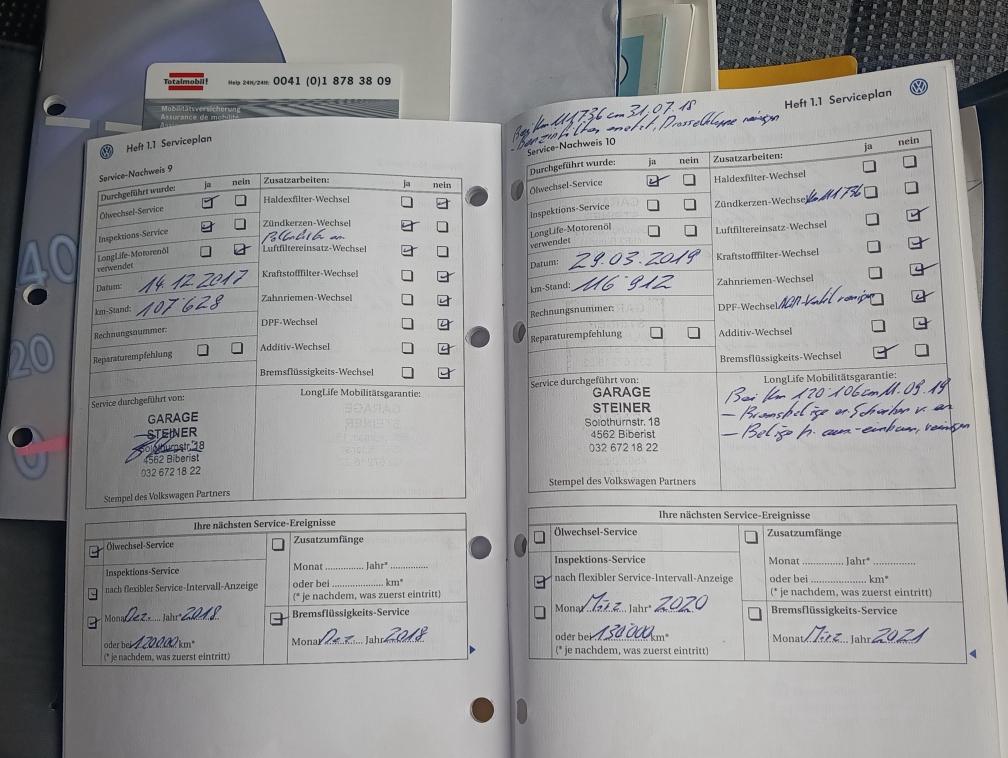 Totalmobil! Help 24H/24H: 0041 (0)1 878 38 09
Mobilitätsversicherung
Assurance de mobilité
40
20
0
Heft 1.1 Serviceplan
Service-Nachweis 9
Durchgeführt wurde: ja nein Zusatzarbeiten: ja nein
Ölwechsel-Service Haldexfilter-Wechsel
Inspektions-Service Zündkerzen-Wechsel
LongLife-Motorenöl
verwendet Luftfiltereinsatz-Wechsel
Datum: 14.12.2017 Kraftstofffilter-Wechsel
km-Stand: 107'628 Zahnriemen-Wechsel
Rechnungsnummer: DPF-Wechsel
Reparaturempfehlung Additiv-Wechsel
Bremsflüssigkeits-Wechsel
Service durchgeführt von: LongLife Mobilitätsgarantie:
GARAGE
STEINER
Solothurnstr. 18
4562 Biberist
032 672 18 22
Stempel des Volkswagen Partners
Ihre nächsten Service-Ereignisse
Ölwechsel-Service Zusatzumfänge
Inspektions-Service Monat .............. Jahr* ..............
nach flexibler Service-Intervall-Anzeige oder bei .................... km*
Monat Dez. Jahr* 2018 (* je nachdem, was zuerst eintritt)
oder bei 120'000 km* Bremsflüssigkeits-Service
(* je nachdem, was zuerst eintritt) Monat Dez. Jahr 2018
Heft 1.1 Serviceplan
Bei Km 111'736 am 31.07.18
- Benzinfilter ersetzt, Drosselklappe reinigen
Service-Nachweis 10
Durchgeführt wurde: ja nein Zusatzarbeiten: ja nein
Ölwechsel-Service Haldexfilter-Wechsel
Inspektions-Service Zündkerzen-Wechsel Km 111'736
LongLife-Motorenöl
verwendet Luftfiltereinsatz-Wechsel
Datum: 29.03.2019 Kraftstofffilter-Wechsel
km-Stand: 116'912 Zahnriemen-Wechsel
Rechnungsnummer: DPF-Wechsel AGR-Ventil reinigen
Reparaturempfehlung Additiv-Wechsel
Bremsflüssigkeits-Wechsel
Service durchgeführt von: LongLife Mobilitätsgarantie:
GARAGE
STEINER
Solothurnstr. 18
4562 Biberist
032 672 18 22
Bei Km 120'106 am 11.09.19
- Bremsbeläge + Scheiben v. er.
- Beläge h. aus-einbauen, reinigen
Stempel des Volkswagen Partners
Ihre nächsten Service-Ereignisse
Ölwechsel-Service Zusatzumfänge
Inspektions-Service Monat .............. Jahr* ..............
nach flexibler Service-Intervall-Anzeige oder bei .................... km*
Monat März Jahr* 2020 (* je nachdem, was zuerst eintritt)
oder bei 130'000 km* Bremsflüssigkeits-Service
(* je nachdem, was zuerst eintritt) Monat März Jahr 2021